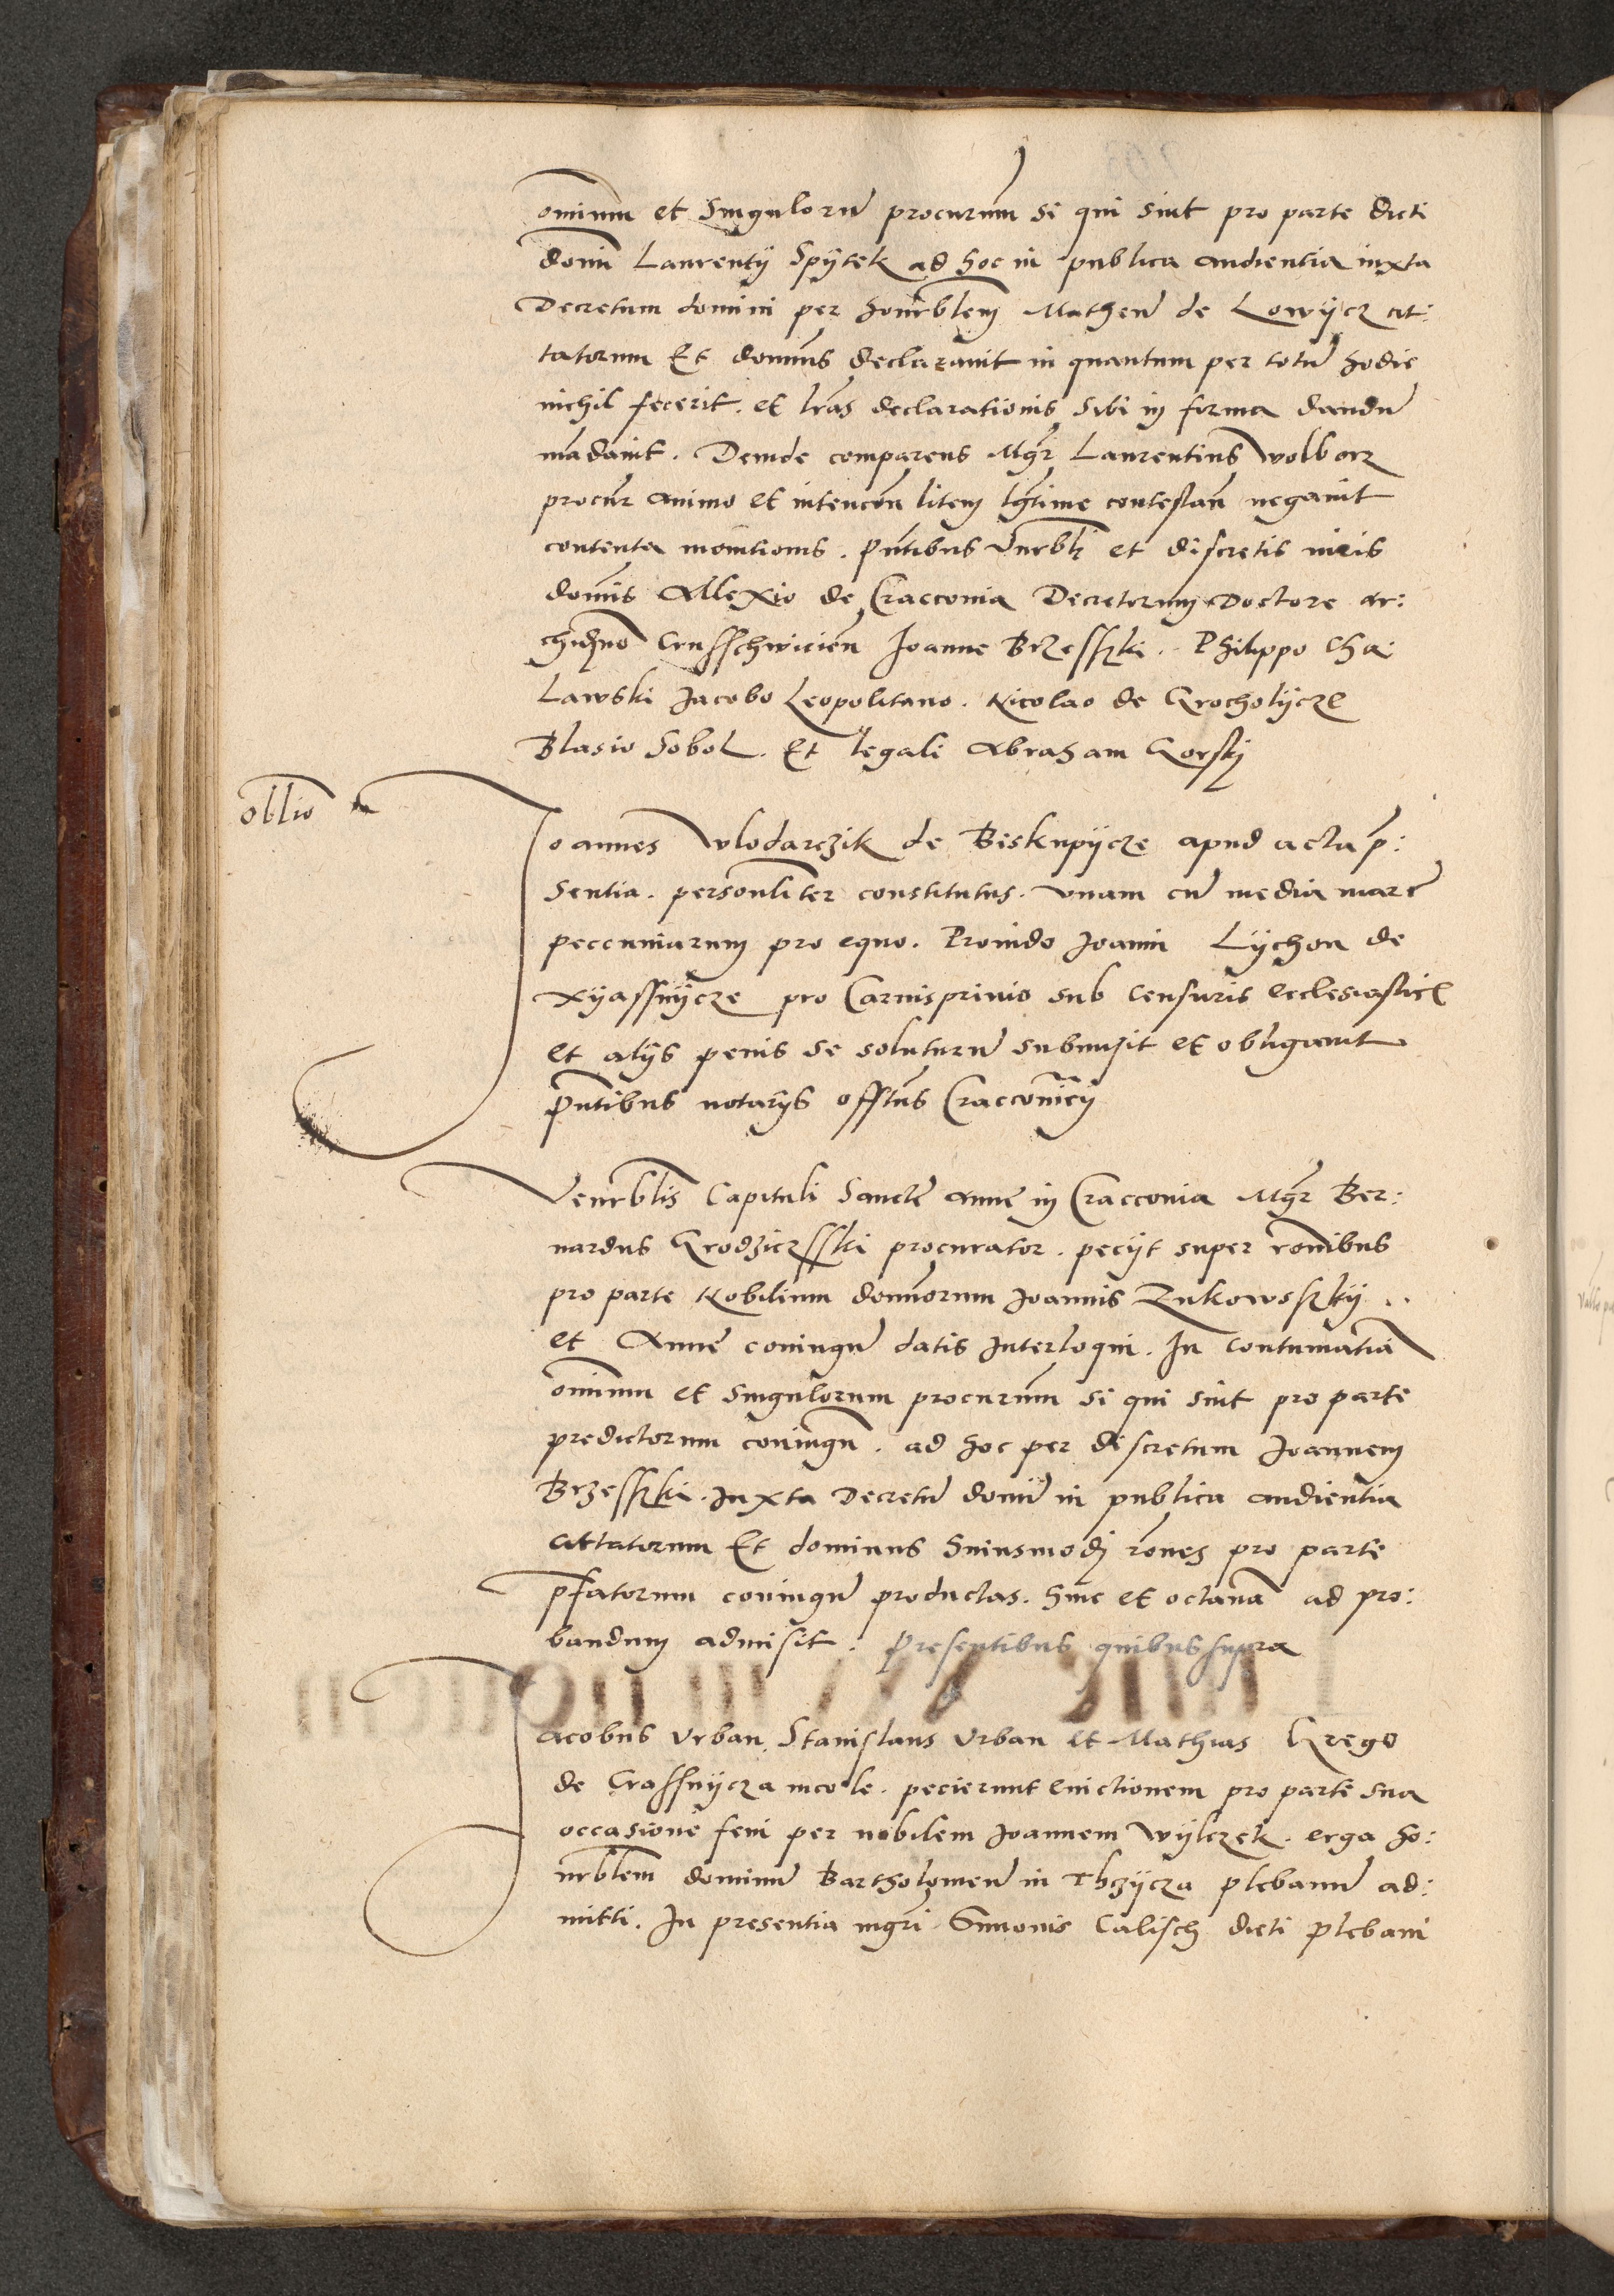 omnium et Singuloru procurum si qui sint pro parte dicti
domi Laurentij Spijtek ad hoc in publica audientia iuxta
Decretum domini per honrblem Matheu de Lowijcz cit:
tatorum Et domnus declarauit in quantum per totu hodie
nichil fecerit. et lras declarationis sibi in forma dandu
madauit. Deinde comparens Mgr Laurentius Wolborz
procur animo et intencon litem lgtime contestan negauit
contenta monitionis. Pntibus Venrbli et discretis viris
domis Allexio de Cracconia Decretorum Doctore ar:
chidno Crusschwicien Joanne Brzesski. Philippo Cha
Lawski Jacobo Leopolitano. Nicolao de Grocholijcze
Blasio Sobol. Et legali Abraham Gorskj
oblio
Joannes Wlodarczik de Biskupijcze apud acta p:
sentia. personliter constitutus. vnam cu media marc
peccuniarum pro equo. Prouido Joanni Lijchon de
Xijassnijcze pro Carnispriuio sub Censuris ecclesiastic
et alijs penis se soluturu submisit et obligauit
Pntibus notarijs offtus Cracconicij
Venrblis Capituli Sancte Anne in Cracconia Mgr Ber:
nardus Grodziczsski procurator. pecijt super ronibus
pro parte Nobilium domnorum Joannis Zukowsskij ..
et Anne coniugu datis Interloqui. In Contumatia
omnium et singulorum procurum si qui sint pro parte
predictorum coniugu. ad hoc per discretum Joannem
Brzesski. Iuxta Decretu domi in publica audientia
cittatorum Et dominus huiusmodj rones pro parte
pfatorum coniugu productas. hinc et octaua ad pro:
bandum admisit. Presentibus quibus supra
Jacobus Vrban. Stanislaus Vrban et Mathias Grego
de Crassnijcza incole. pecierunt euictionem pro parte sua
occasione feni per nobilem Joannem Wijlczek. erga ho:
nrblem dominu Bartholomeu in Thczijcza plebanu ad:
mitti. In presentia mgri Simonis Calisch dicti Plebani